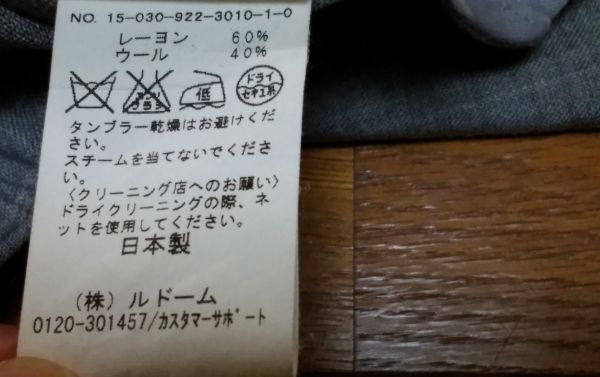 NO. 15-030-922-3010-1-0
レーヨン 60%
ウール 40%
低
ドライ
セキユ系
タンブラー乾燥はお避けくだ
さい。
スチームを当てないでくださ
い。
〈クリーニング店へのお願い〉
ドライクリーニングの際、ネ
ットを使用してください。
日本製
（株）ルドーム
0120-301457/ｶｽﾀﾏｰｻﾎﾟｰﾄ